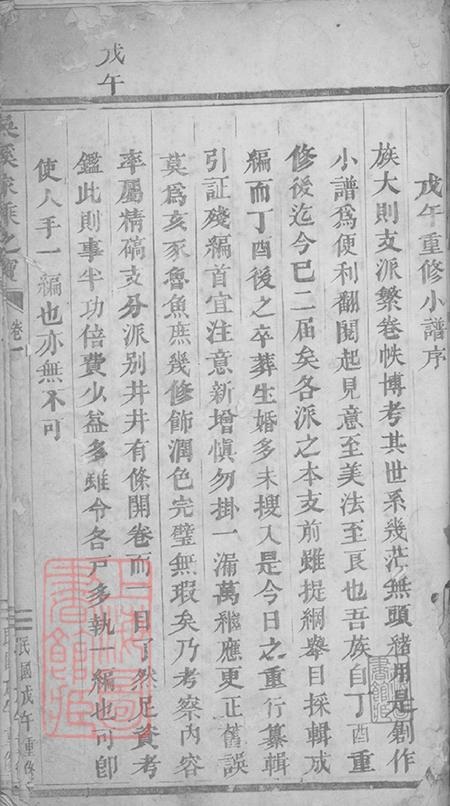 戊午
戊午重修小譜序
族大則支派繁卷帙博考其世系幾茫無頭緒用是創作
小譜爲便利翻閱起見意至美法至良也吾族自丁酉重
修後迄今已二屆矣各派之本支前雖提綱舉目採輯成
編而丁酉後之卒葬生婚多未搜入是今日之重行纂輯
引証殘編首宜注意新增慎勿掛一漏萬繼應更正舊誤
莫爲亥豕魯魚庶幾修飾潤色完璧無瑕矣乃考察內容
率屬精確支分派別井井有條開卷而一目了然足資考
鑑此則事半功倍費少益多雖令各戶多執一編也可卽
使人手一編也亦無不可
吳溪家乘之寶
卷一
民國戊午重修
上海圖書館藏